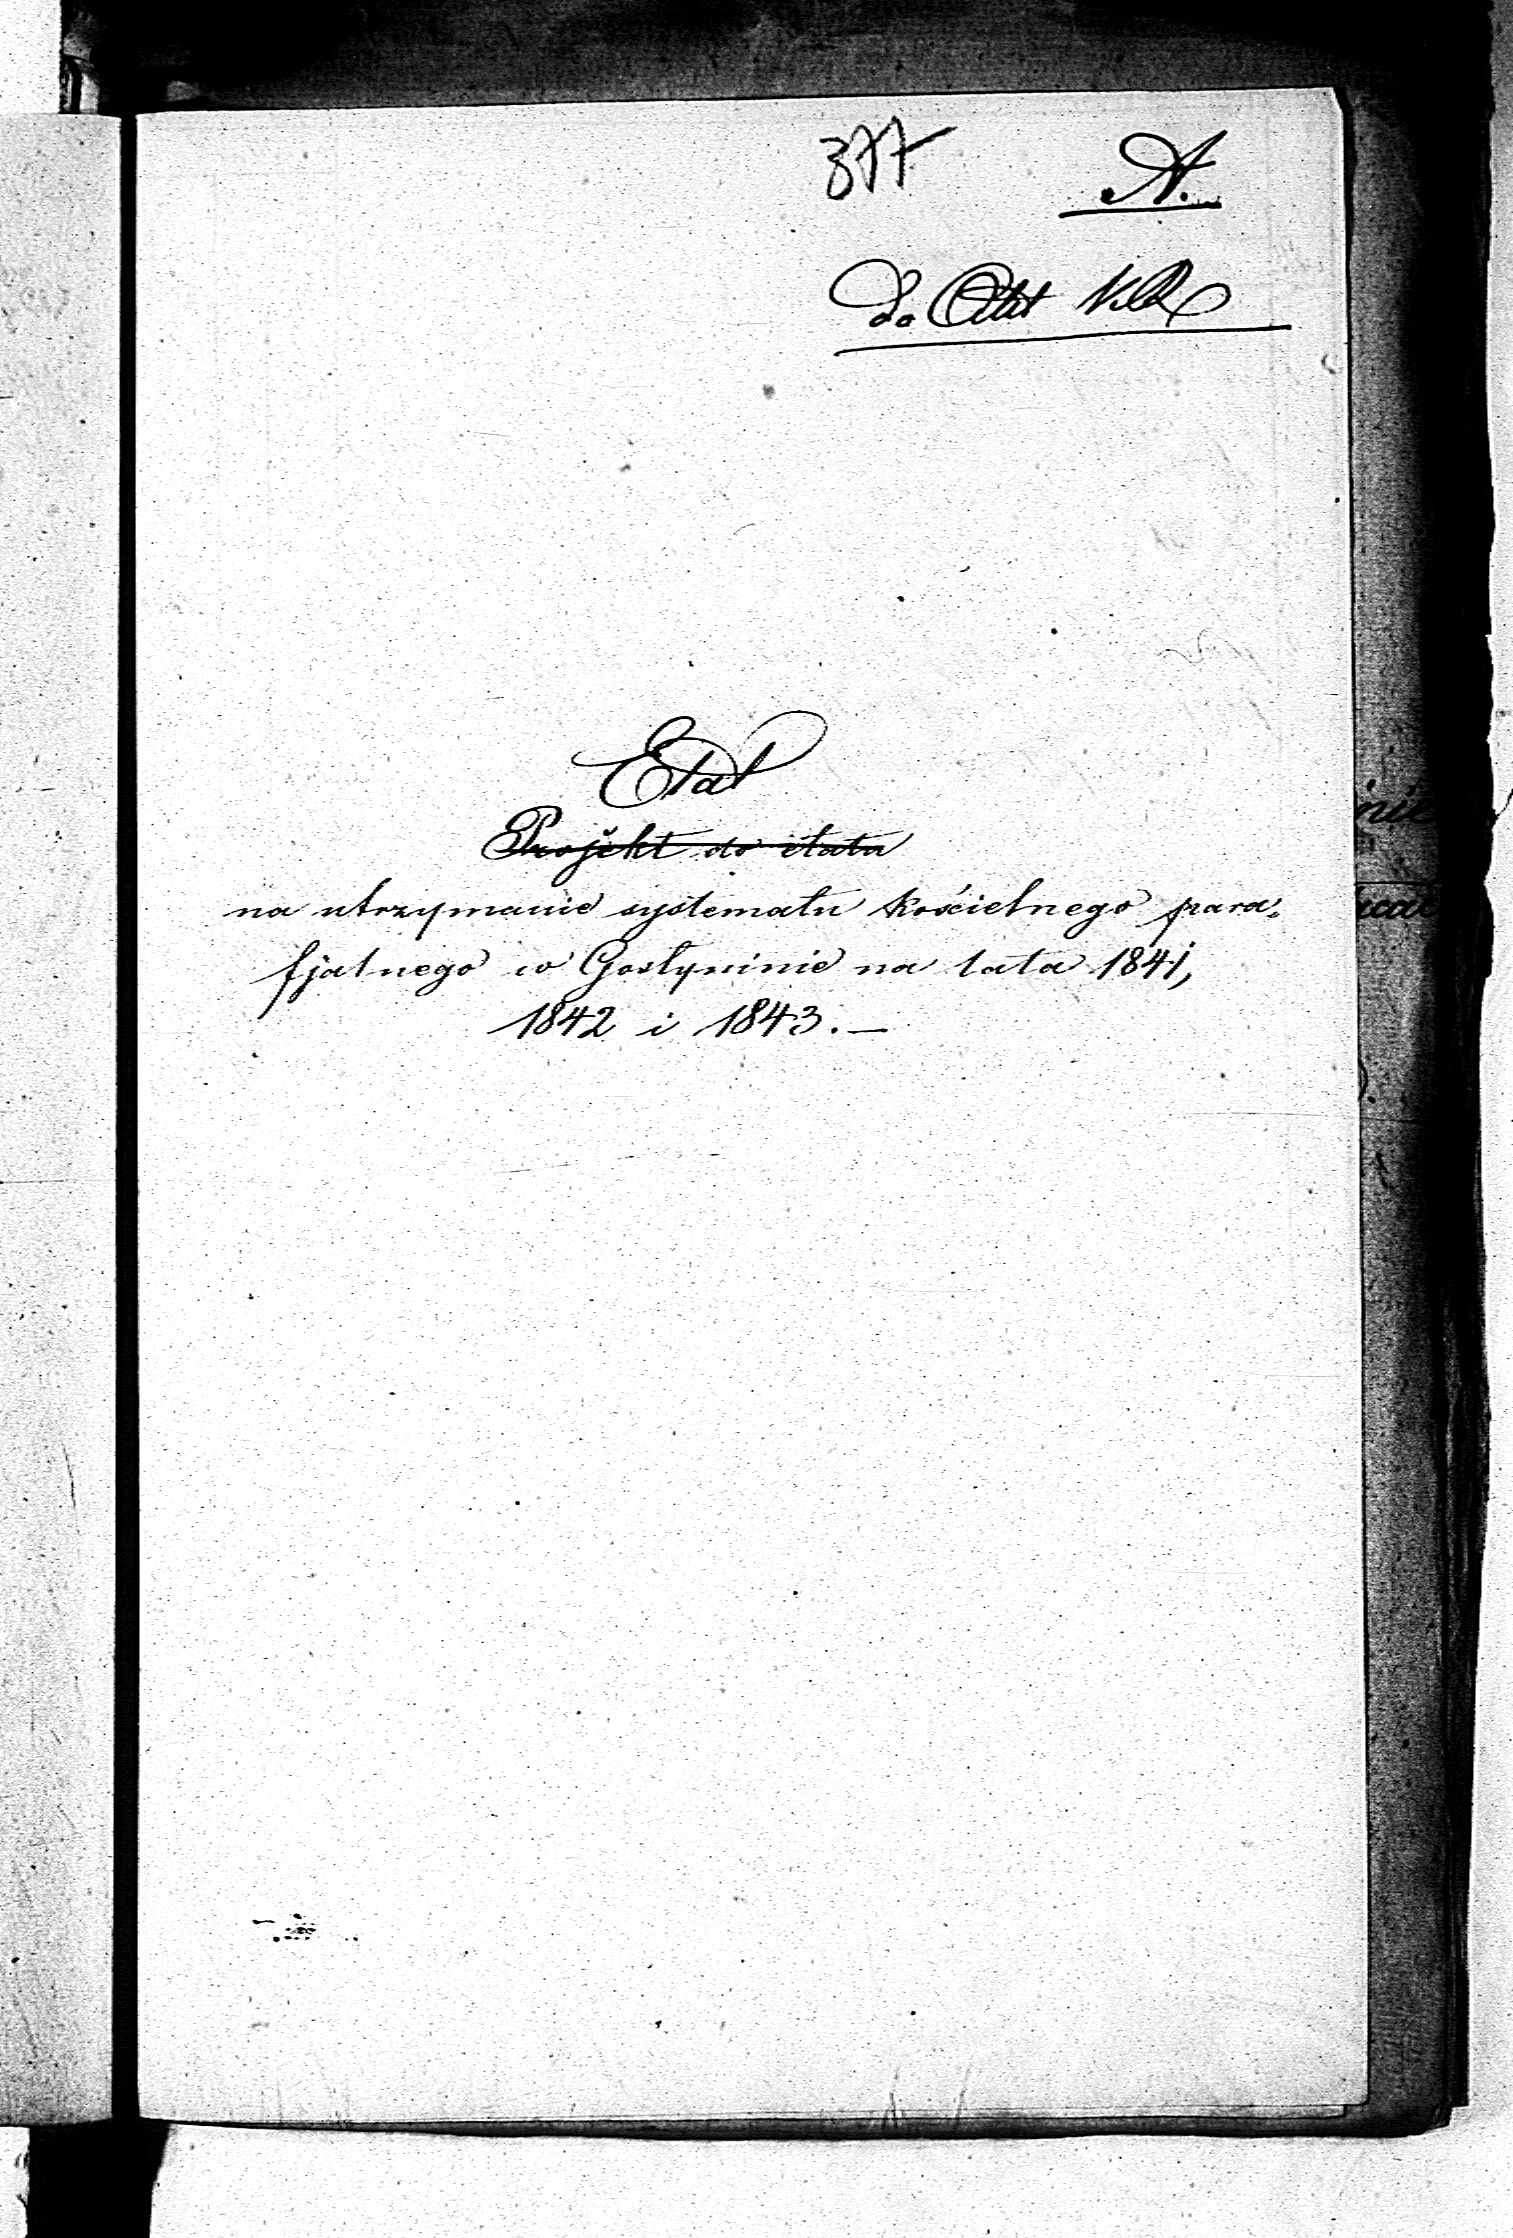 377 A.
do Akt K.R.
Etat
Projekt do etatu
na utrzymanie systematu kościelnego para-
fjalnego w Gostyninie na lata 1841,
1842 i 1843. —